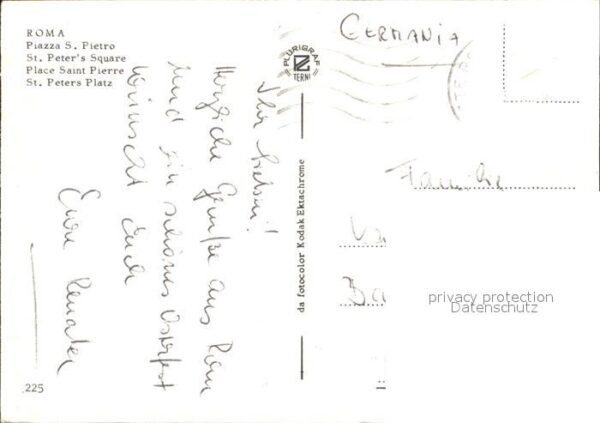 ROMA
Piazza S. Pietro
St. Peter's Square
Place Saint Pierre
St. Peters Platz
Ihr Lieben!
Herzliche Grüße aus Rom
und ein schönes Osterfest
wünscht Euch
Eure Renate
225
PLURIGRAF
TERNI
da fotocolor Kodak Ektachrome
GERMANIA
Familie
privacy protection
Datenschutz